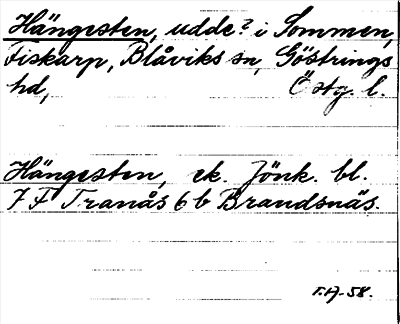 Hängesten, udde? i Sommen,
Fiskarp, Blåviks sn, Göstrings
hd, Östg. l.
Hängesten, ek. Jönk. bl.
7 F Tranås 6 b Brandsnäs.
T.H-58.